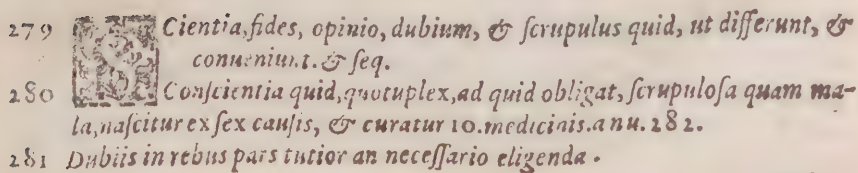 279 Scientia, fides, opinio, dubium, & ſcrupulus quid, ut differunt, &
conueniunt. & ſeq.
280 Conſcientia quid, quotuplex, ad quid obligat, ſcrupuloſa quam ma-
la, naſcitur ex ſex cauſis, & curatur 10. medicinis. a nu. 282.
281 Dubiis in rebus pars tutior an neceſſario eligenda.